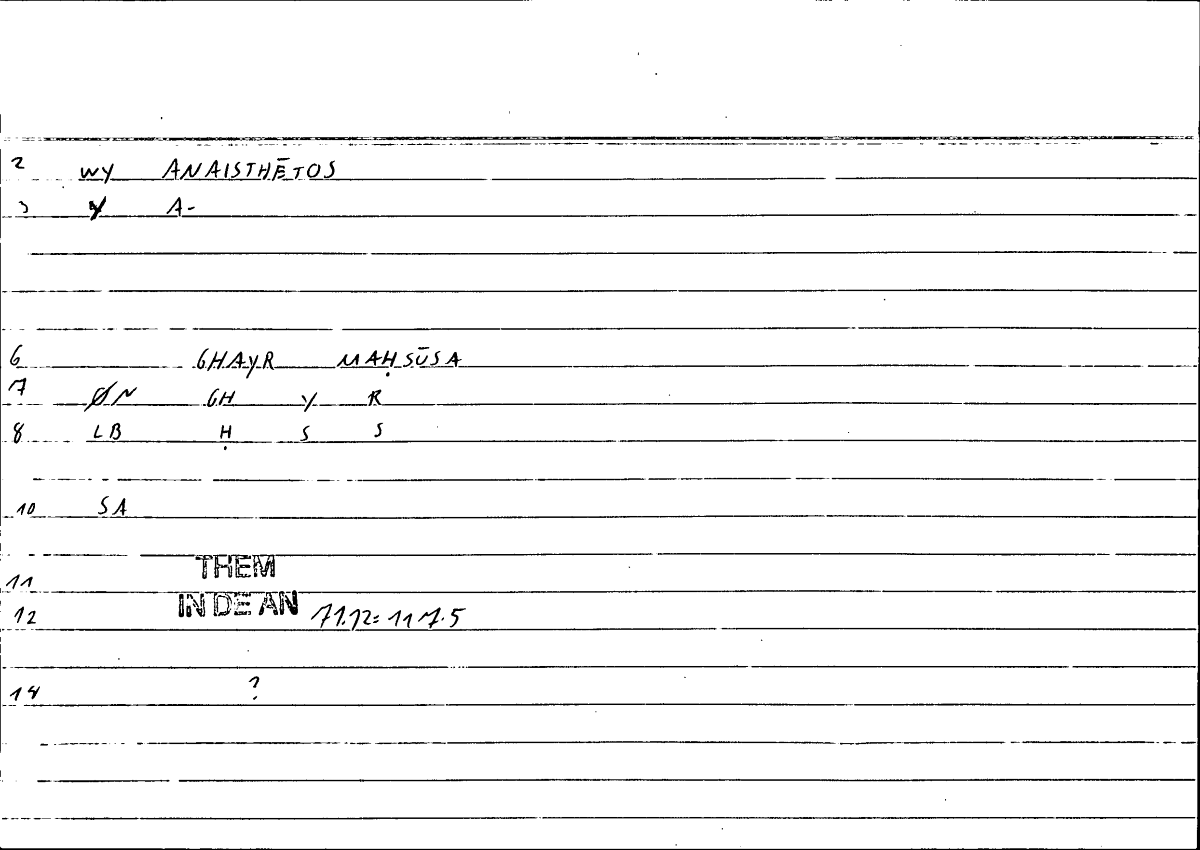 2 wy ANAISTHĒTOS
3 y A-
6 GHAYR MAḤSŪSA
7 ØN GH Y R
8 LB Ḥ S S
10 SA
THEM
11
12 IN DE AN 71.12= 117.5
14 ?